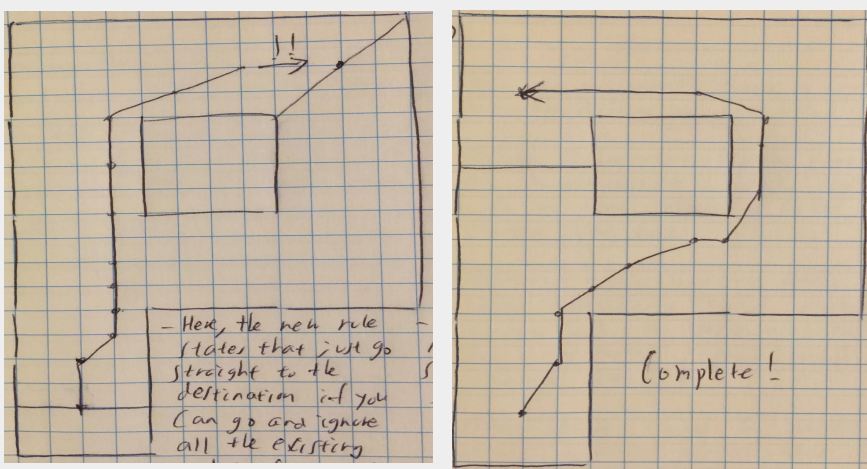 !!
- Here, the new rule
states that just go
straight to the
destination if you
can go and ignore
all the existing
Complete!